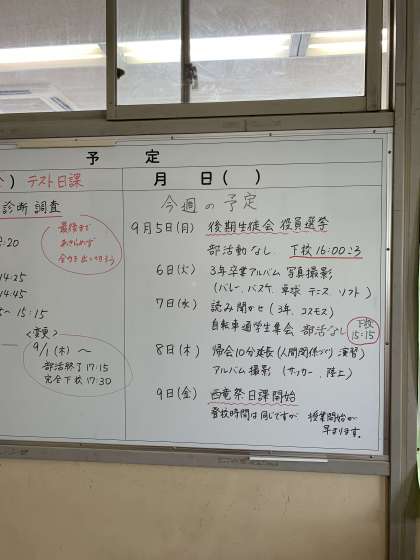 予 定
) テスト日課
診断調査
最後まで
あきらめず
全力を出し切ろう
:20
14:25
14:45
5～15:15
<変更>
9/1(木) ～
部活終了 17:15
完全下校 17:30
月 日 ( )
今週の予定
9月5日(月) 後期生徒会 役員選挙
部活動なし 下校16:00ころ
6日(火) 3年卒業アルバム 写真撮影
(バレー、バスケ、卓球、テニス、ソフト)
7日(水) 読み聞かせ (3年、コスモス)
自転車通学生集会 部活なし 下校 15:15
8日(木) 帰会10分延長(人間関係づくり演習)
アルバム撮影 (サッカー、陸上)
9日(金) 西竜祭日課開始
登校時間は同じですが、授業開始が
早まります。